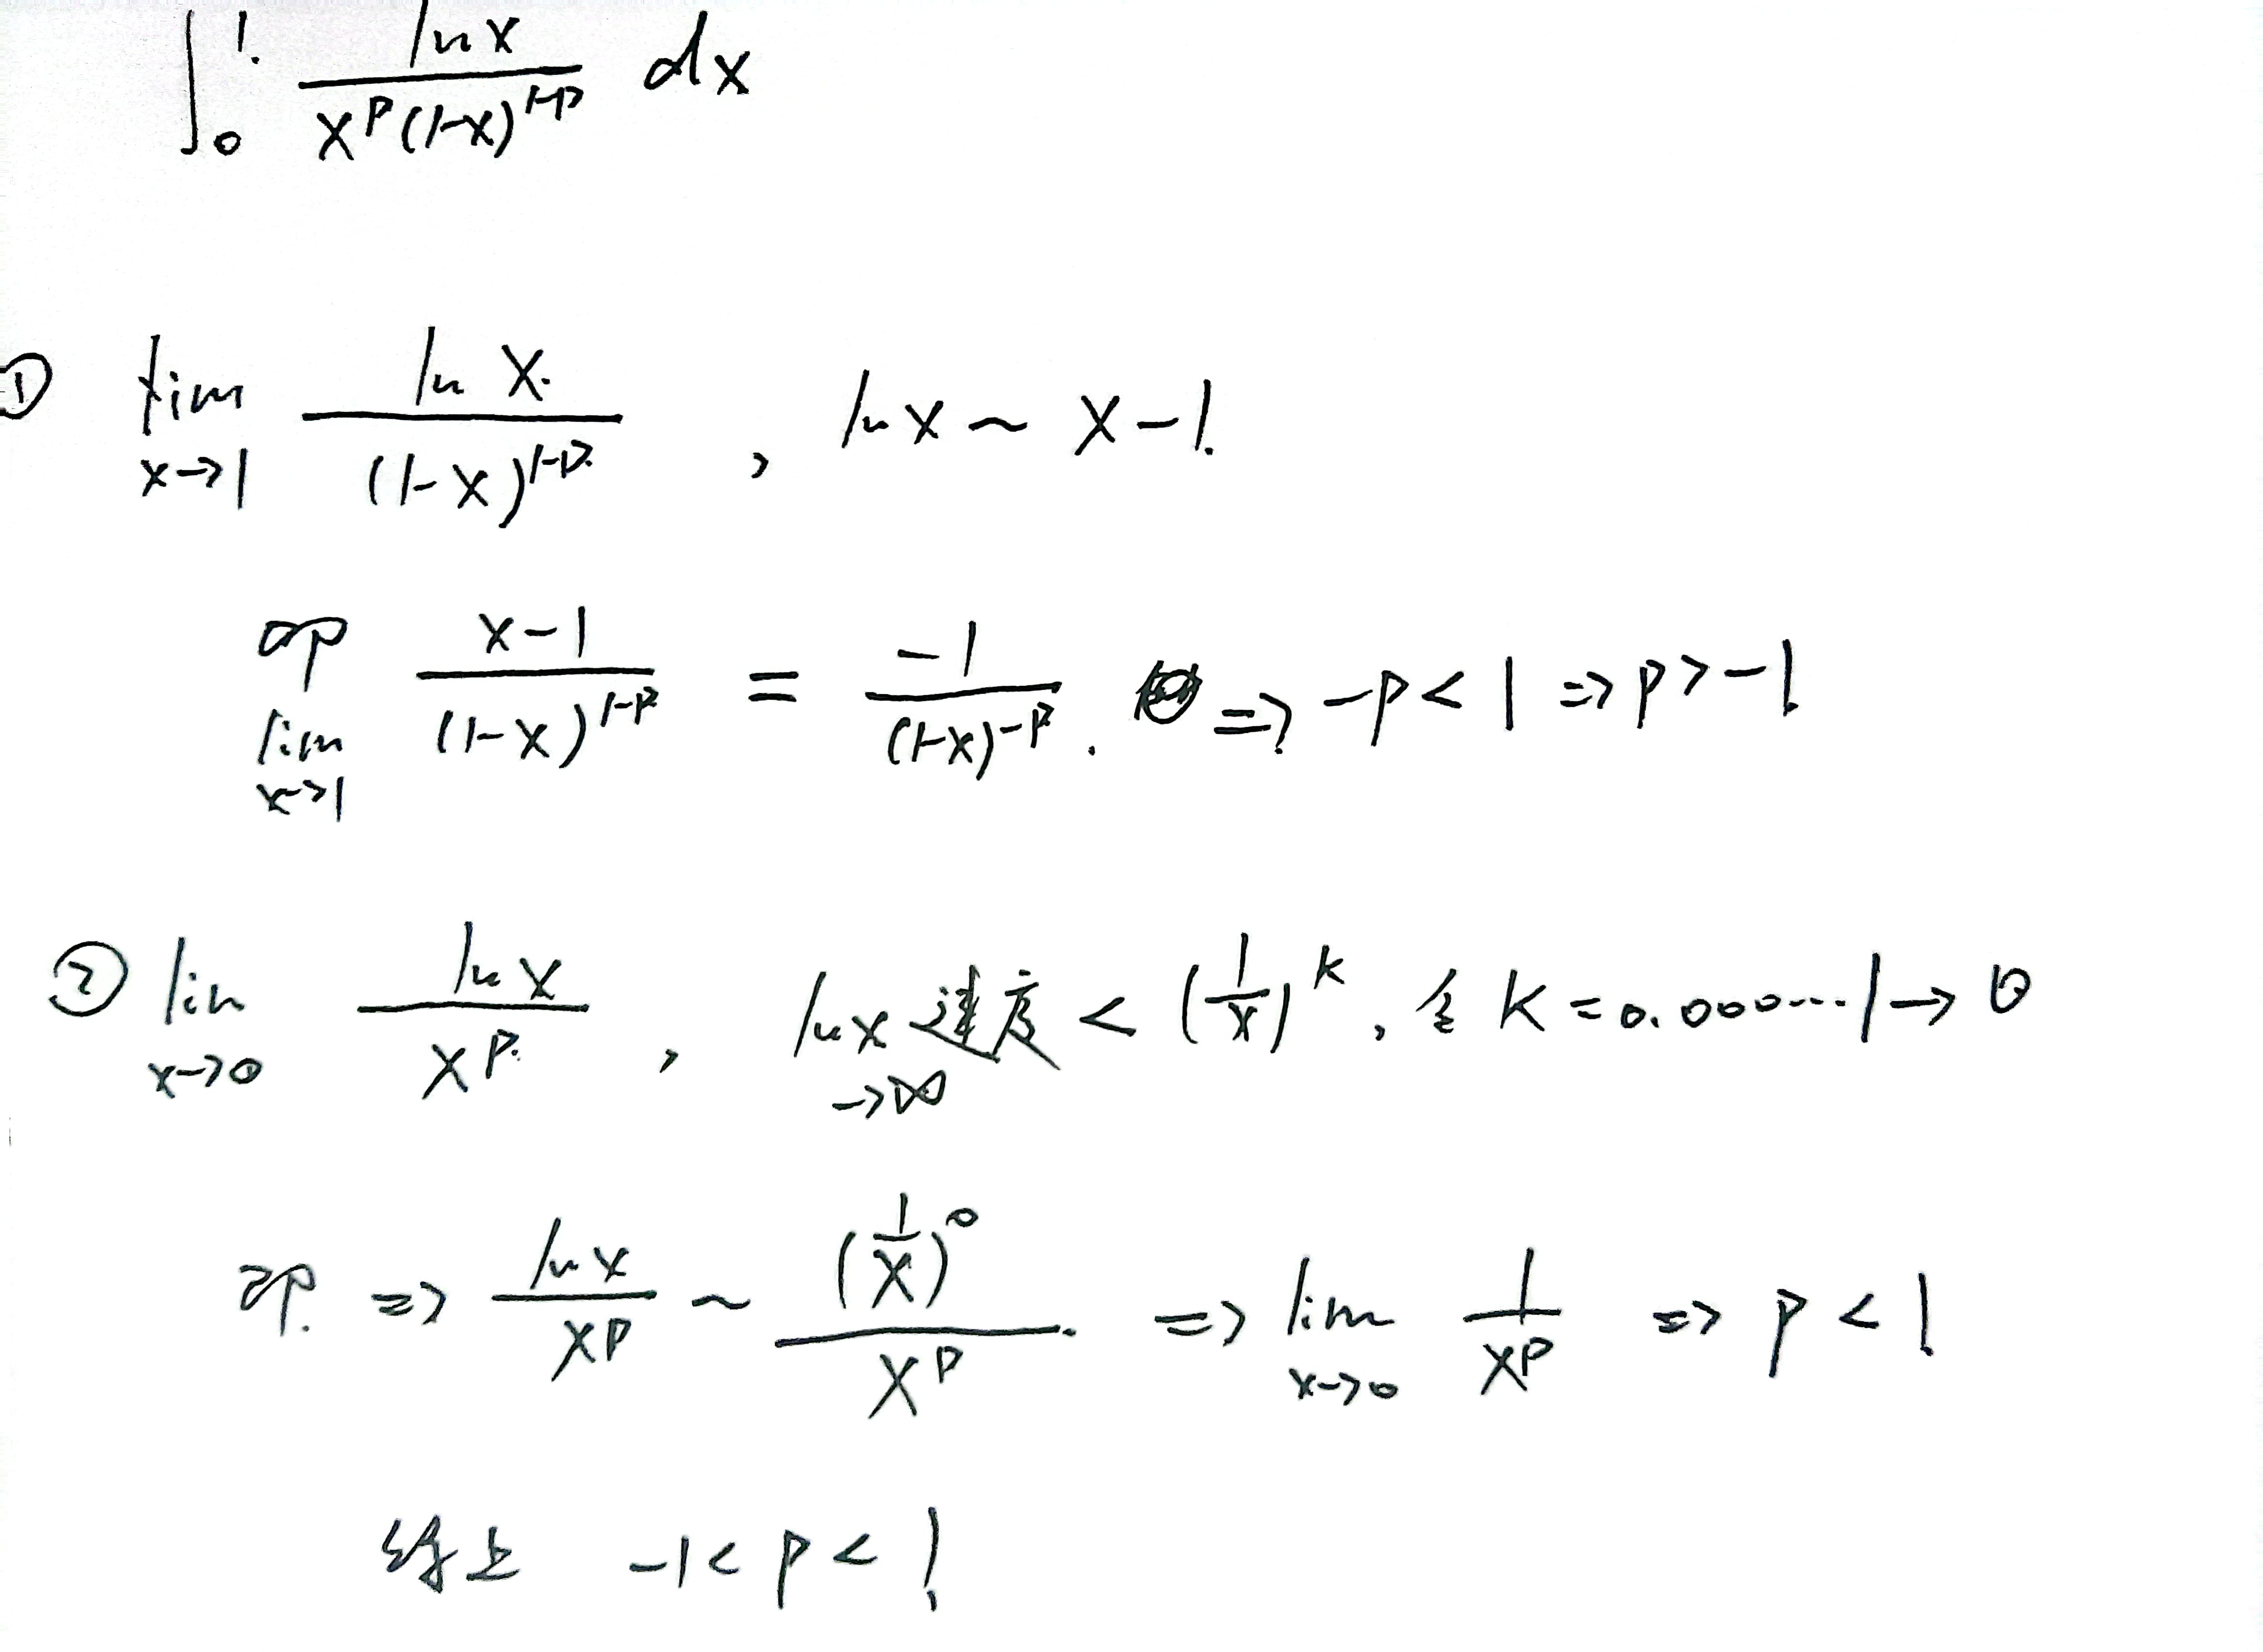 ∫₀¹ lnx / (x^p (1-x)^(1-p)) dx
① lim x→1 ln x / (1-x)^(1-p) , ln x ~ x-1.
即 lim x→1 (x-1) / (1-x)^(1-p) = -1 / (1-x)^(-p) . ⇒ -p < 1 ⇒ p > -1
② lim x→0 ln x / x^p , ln x →∞ 速度 < (1/x)^k , 令 k = 0.000……1 → 0
即 ⇒ ln x / x^p ~ (1/x)^0 / x^p ⇒ lim x→0 1 / x^p ⇒ p < 1
综上 -1 < p < 1